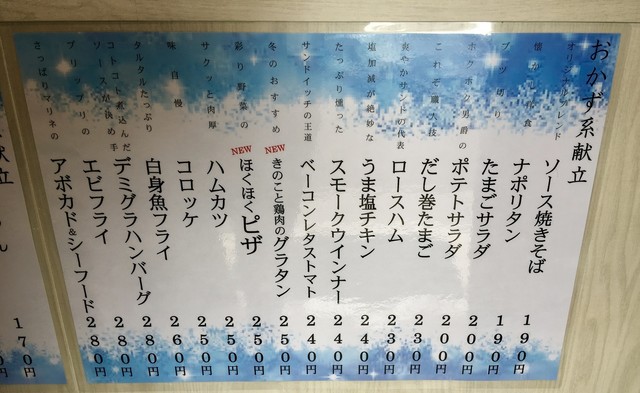 おかず系献立
オリジナルブレンド
ソース焼きそば 190円
懐かし洋食
ナポリタン 190円
ブツ切り
たまごサラダ 200円
ホクホク男爵の
ポテトサラダ 200円
これぞ職人技
だし巻たまご 230円
爽やかサンドの代表
ロースハム 230円
塩加減が絶妙な
うま塩チキン 240円
たっぷり燻った
スモークウインナー 240円
サンドイッチの王道
ベーコンレタストマト 240円
冬のおすすめ
NEW
きのこと鶏肉のグラタン 250円
彩り野菜の
NEW
ほくほくピザ 250円
サクッと肉厚
ハムカツ 250円
味自慢
コロッケ 260円
タルタルたっぷり
白身魚フライ 280円
コトコト煮込んだ
ソースが決め手
デミグラハンバーグ 280円
プリップリの
エビフライ 280円
さっぱりマリネの
アボカド&シーフード 280円
献立
170円